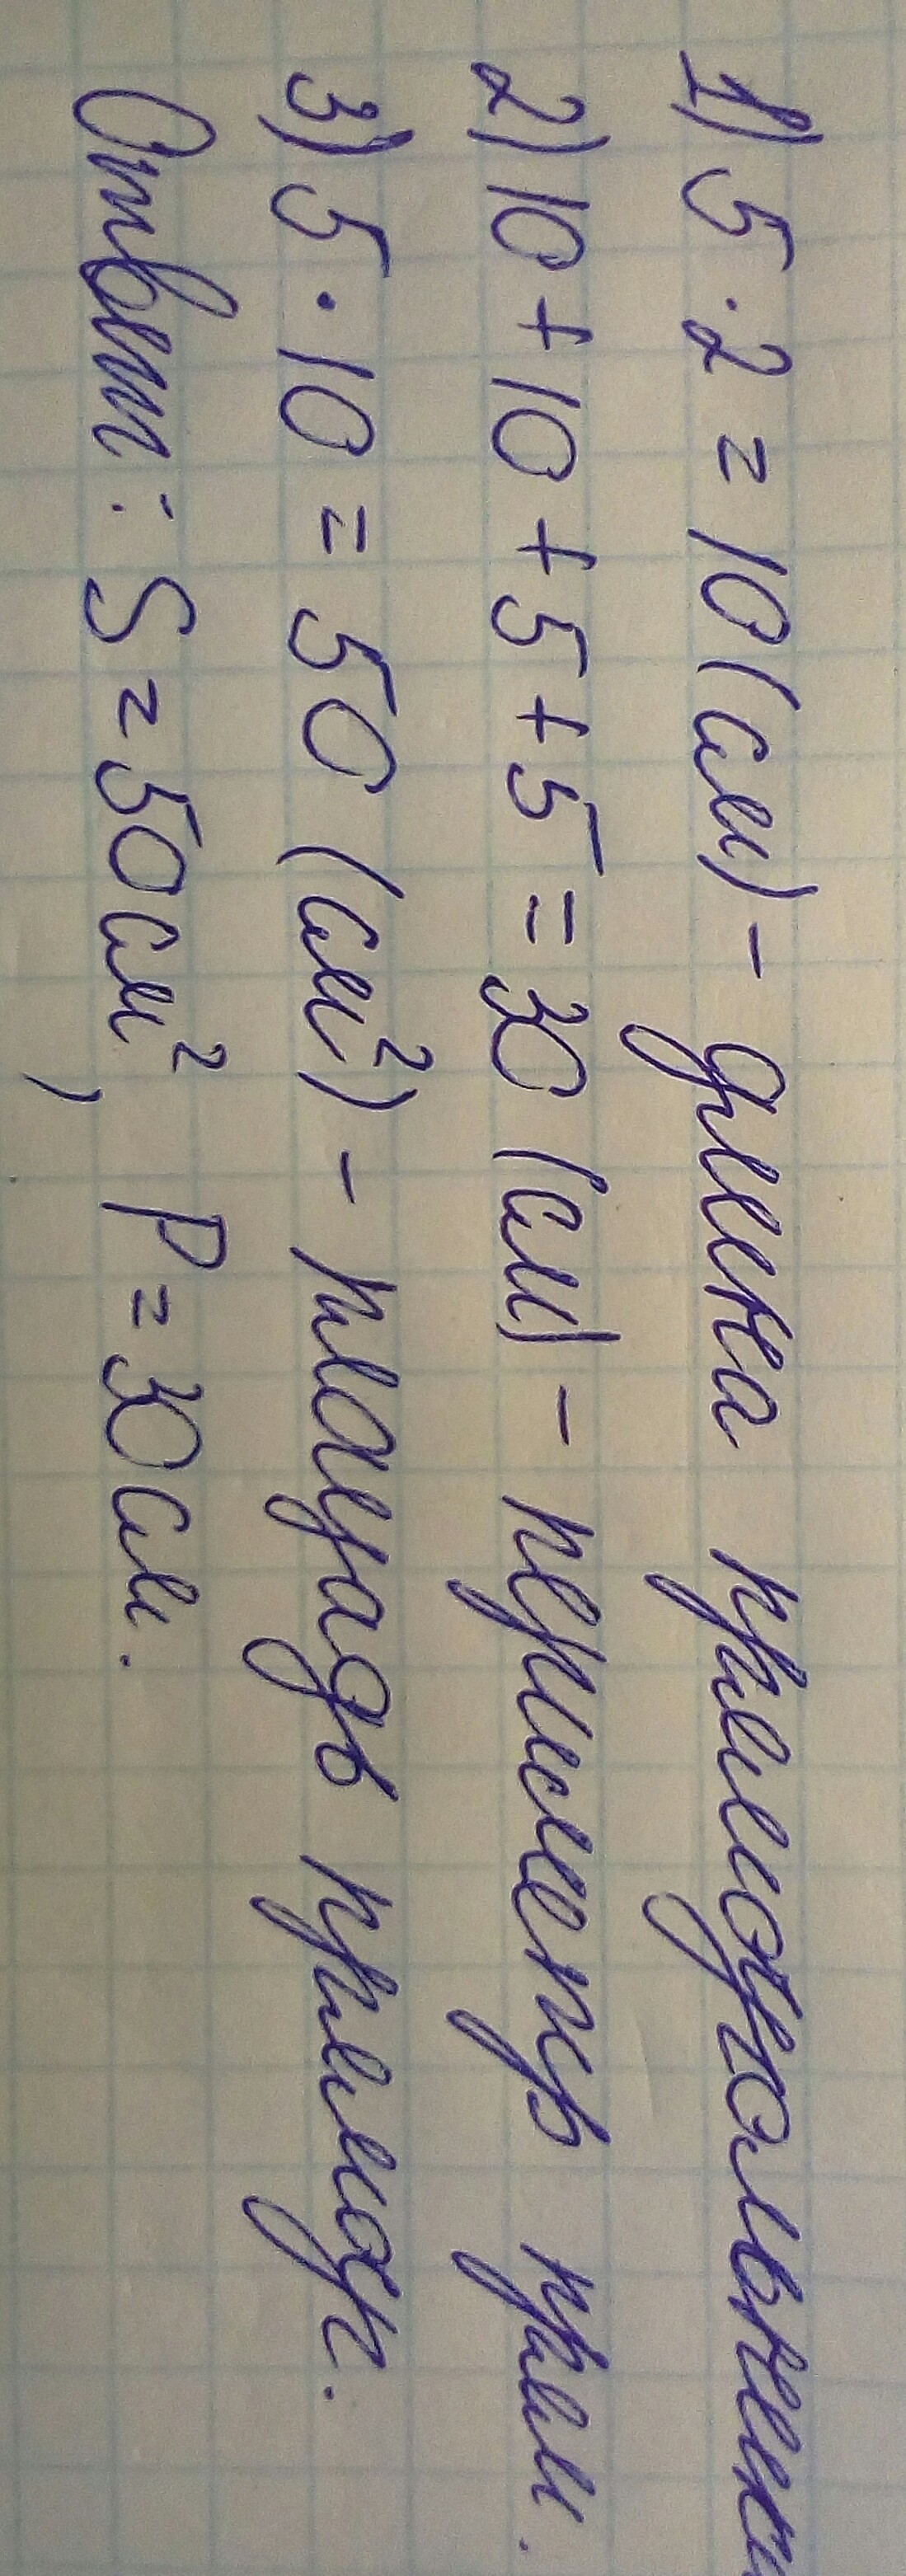 1) 5 · 2 = 10 (см) - длина прямоугольника
2) 10 + 10 + 5 + 5 = 30 (см) - периметр прям.
3) 5 · 10 = 50 (см²) - площадь прямоуг.
Ответ: S = 50 см², P = 30 см.